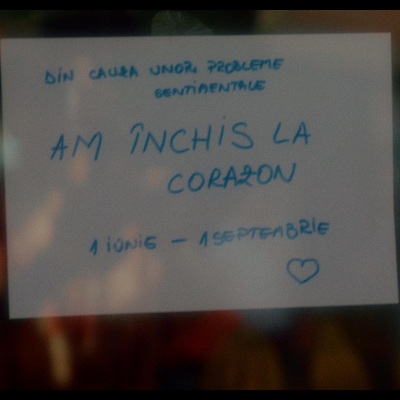 DIN CAUZA UNOR PROBLEME
SENTIMENTALE
AM ÎNCHIS LA
CORAZON
1 IUNIE - 1 SEPTEMBRIE